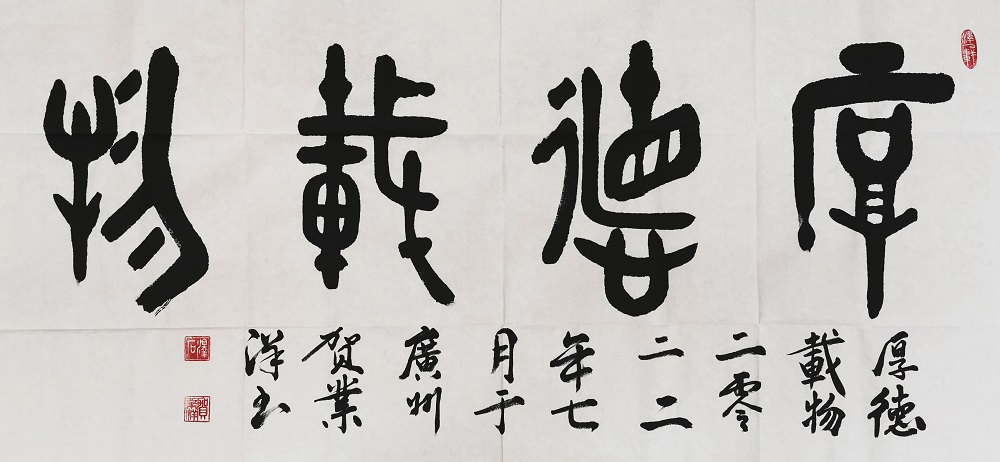 厚德載物
厚德
載物
二零
二二
年七
月于
廣州
賀業
洋书